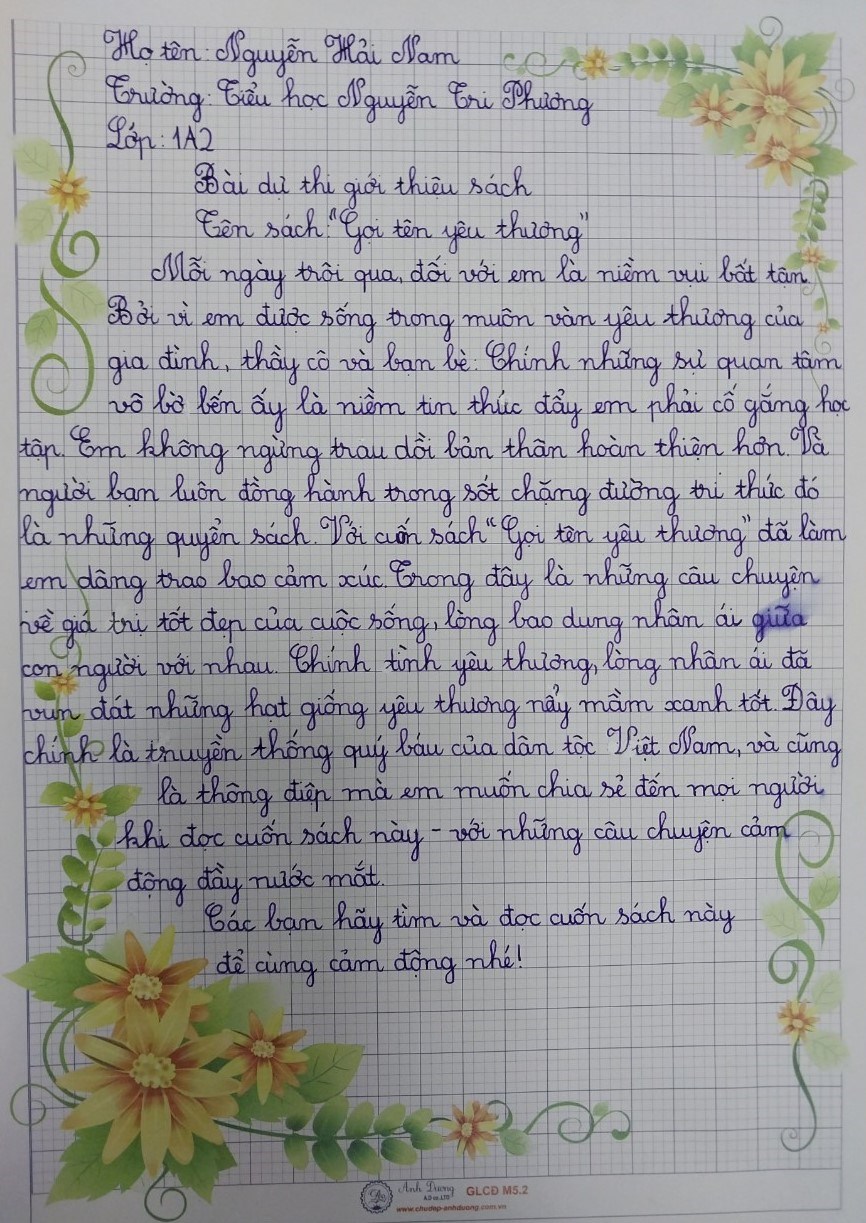 Họ tên: Nguyễn Hải Nam
Trường: Tiểu học Nguyễn Tri Phương
Lớp: 1A2
Bài dự thi giới thiệu sách
Tên sách: "Gọi tên yêu thương"
Mỗi ngày trôi qua, đối với em là niềm vui bất tận.
Bởi vì em được sống trong muôn vàn yêu thương của
gia đình, thầy cô và bạn bè. Chính những sự quan tâm
vô bờ bến ấy là niềm tin thúc đẩy em phải cố gắng học
tập. Em không ngừng trau dồi bản thân hoàn thiện hơn. Và
người bạn luôn đồng hành trong sốt chặng đường tri thức đó
là những quyển sách. Với cuốn sách "Gọi tên yêu thương" đã làm
em dâng trao bao cảm xúc. Trong đây là những câu chuyện
về giá trị tốt đẹp của cuộc sống, lòng bao dung nhân ái giữa
con người với nhau. Chính tình yêu thương, lòng nhân ái đã
vun đát những hạt giống yêu thương nảy mầm xanh tốt. Đây
chính là truyền thống quý báu của dân tộc Việt Nam, và cũng
là thông điệp mà em muốn chia sẻ đến mọi người
khi đọc cuốn sách này - với những câu chuyện cảm
động đầy nước mắt.
Các bạn hãy tìm và đọc cuốn sách này
để cùng cảm động nhé!
Anh Dương
AD co.,LTD
GLCĐ M5.2
www.chudep-anhduong.com.vn